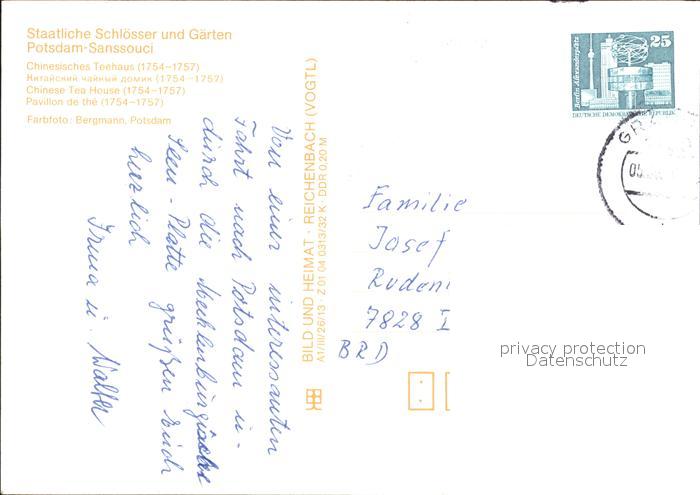 Staatliche Schlösser und Gärten
Potsdam-Sanssouci
Chinesisches Teehaus (1754–1757)
Китайский чайный домик (1754–1757)
Chinese Tea House (1754–1757)
Pavillon de thé (1754–1757)
Farbfoto: Bergmann, Potsdam
Von einer interessanten
Fahrt nach Potsdam u-
durch die Mecklenburgische
Seen-Platte grüßen Euch
herzlich
Irma u. Walter
BILD UND HEIMAT · REICHENBACH (VOGTL)
A1/III/26/13 · Z 01 04 0313/32 K · DDR 0,20 M
25
Berlin, Alexanderplatz
DEUTSCHE DEMOKRATISCHE REPUBLIK
Familie
Josef
7828
BRD
privacy protection
Datenschutz